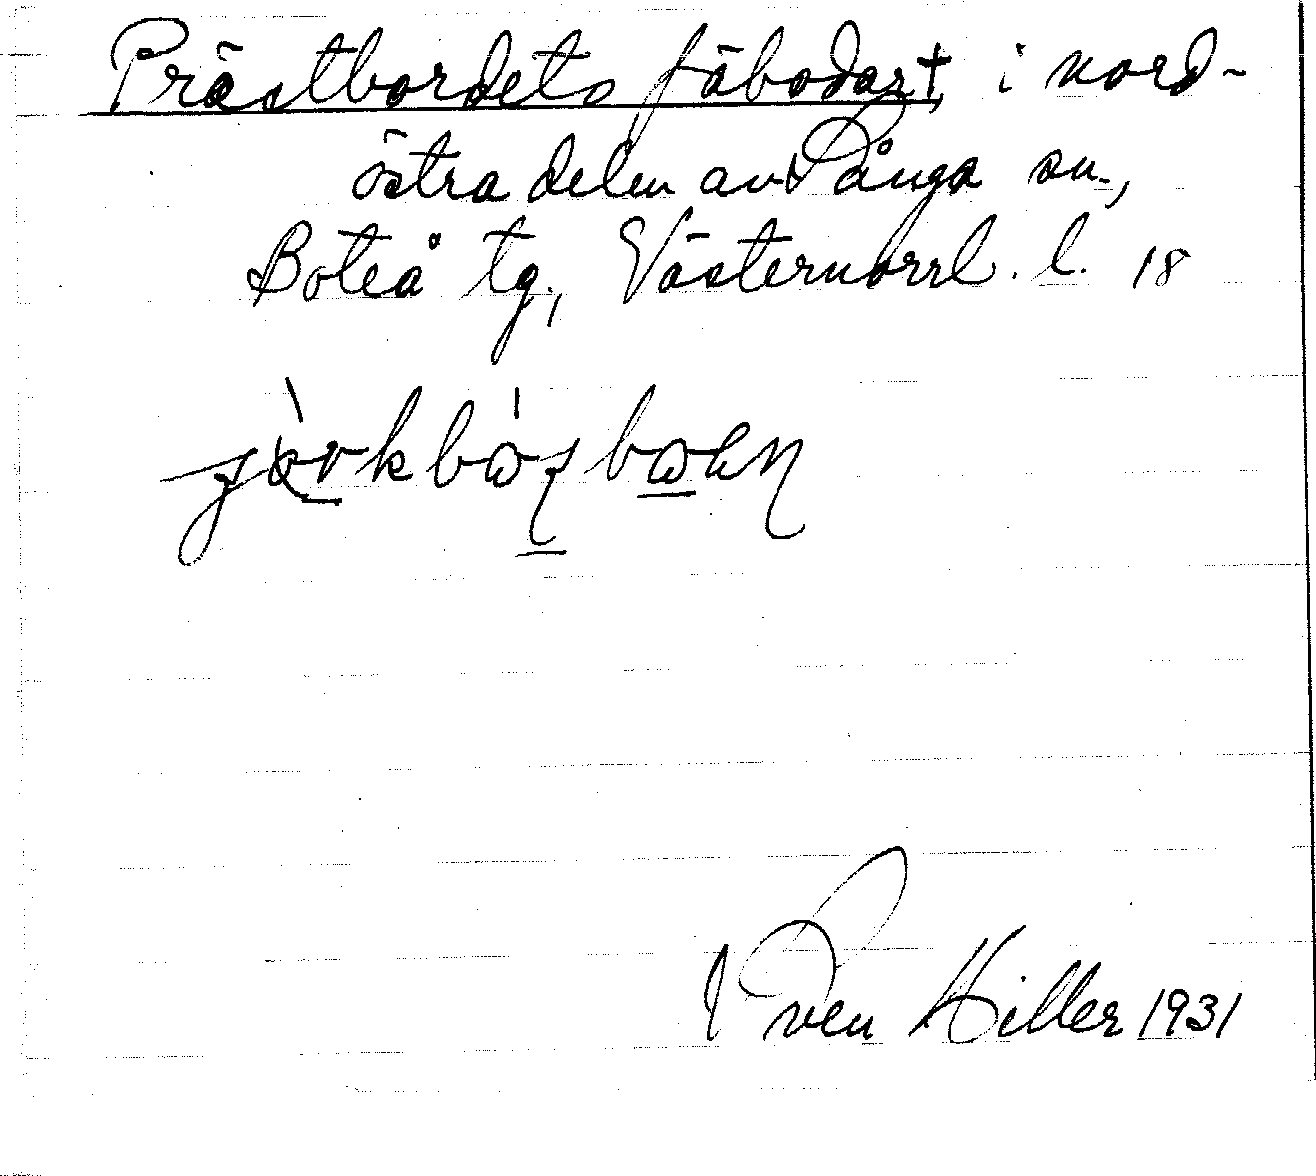 Prästbordets fäbodar†, i nord-
östra delen av Sånga sn.,
Boteå tg., Västernorrl. l. 18
Sven Hiller 1931